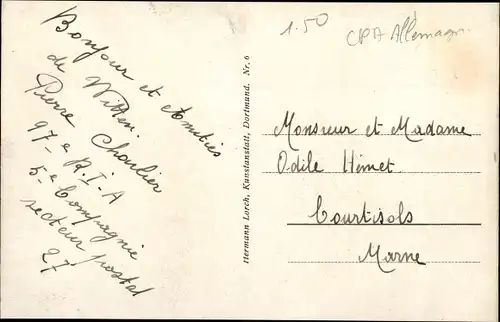 1.50
CPA Allemagn.
Bonjour et Amitiés
de Witten.
Pierre Charlier
97e R.I-A
5e Compagnie
secteur postal
27
Hermann Lorch, Kunstanstalt, Dortmund. Nr. 6
Monsieur et Madame
Odile Himet
Courtisols
Marne